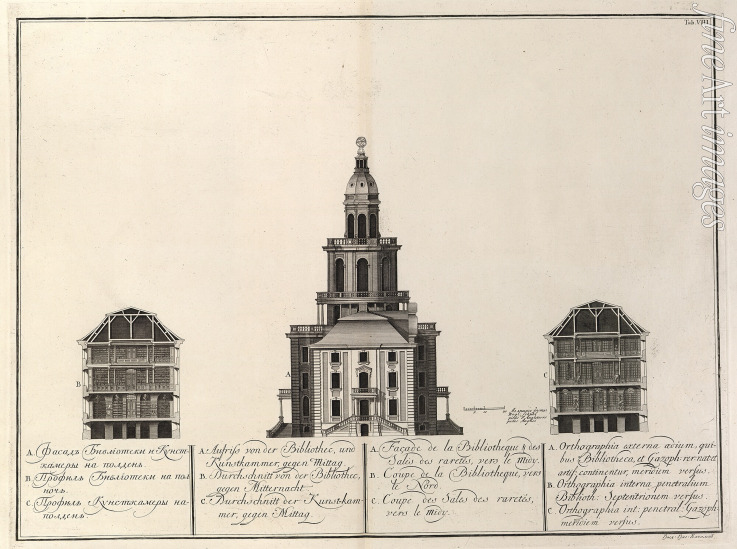 Tab. VIII
fine Art images
A
B
C
A. Фасадъ Библіотеки и Кунст
камеры на полдень.
B. Профиль Библіотеки на пол
ночь.
C. Профиль Кунсткамеры на
полдень.
A. Aufriss von der Bibliothec, und
Kunstkammer, gegen Mittag.
B. Durchschnitt von der Bibliothec,
gegen Mitternacht.
C. Durchschnitt der Kunst-kam-
mer, gegen Mittag.
A. Façade de la Bibliotheque & des
Sales des raretés, vers le Midy.
B. Coupe de la Bibliotheque, vers
le Nord.
C. Coupe des Sales des raretés,
vers le Midy.
A. Orthographia externa ædium, qui-
bus Bibliotheca, et Gazoph: rer: nat: et
artif: continentur, meridiem versus.
B. Orthographia interna penetralium
Biblioth: Septentrionem versus.
C. Orthographia int: penetral: Gazoph:
meridiem versus.